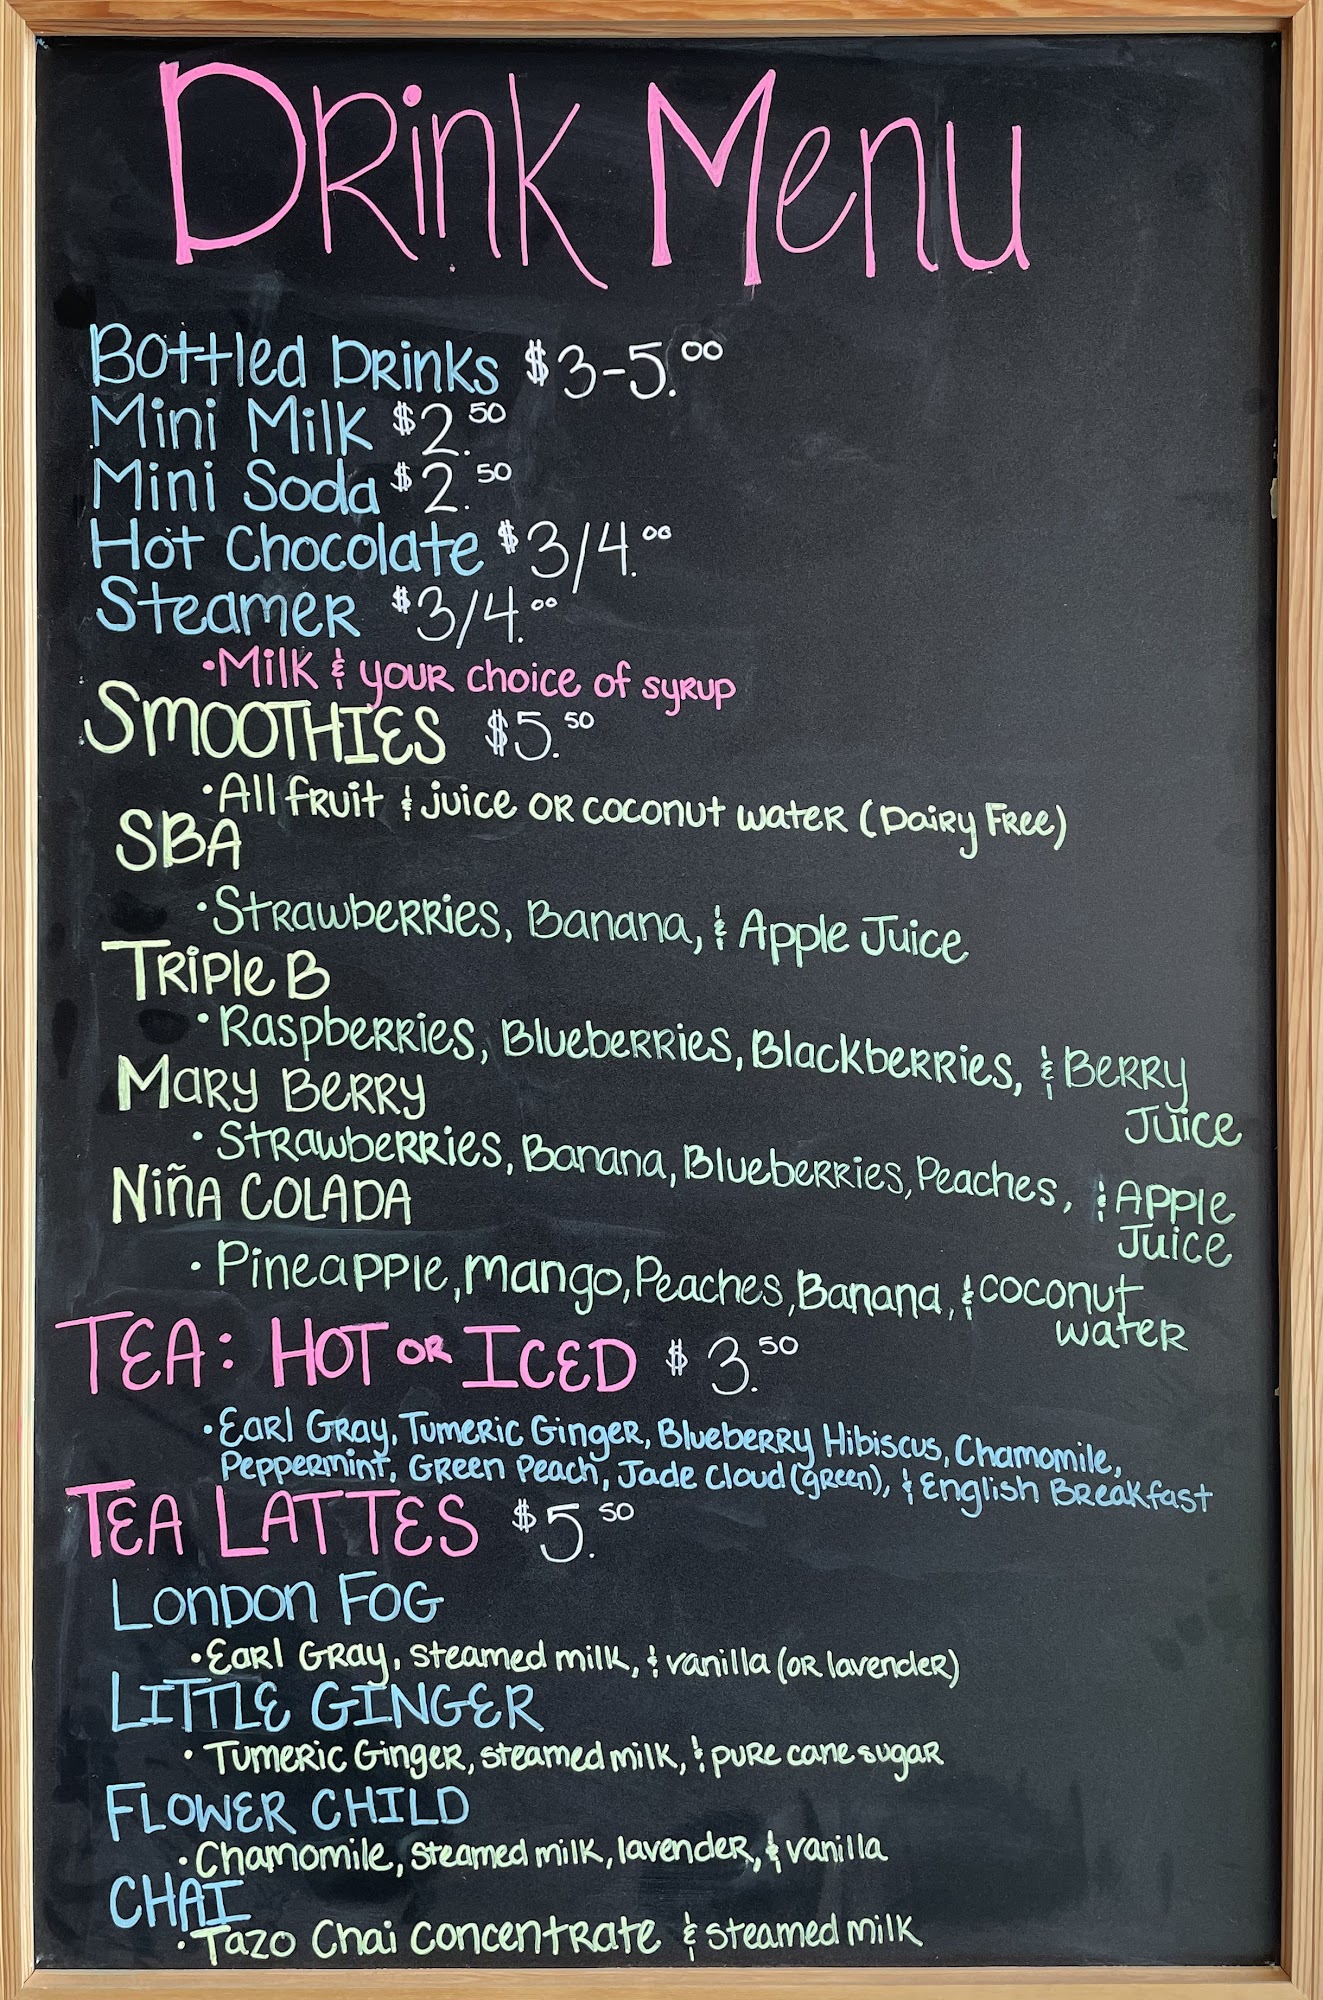 Drink Menu
Bottled Drinks $3-5.00
Mini Milk $2.50
Mini Soda $2.50
Hot Chocolate $3/4.00
Steamer $3/4.00
•Milk & your choice of syrup
SMOOTHIES $5.50
•All fruit & juice or coconut water (Dairy Free)
SBA
•Strawberries, Banana, & Apple Juice
Triple B
•Raspberries, Blueberries, Blackberries, & Berry
Juice
Mary Berry
•Strawberries, Banana, Blueberries, Peaches, & Apple
Juice
Niña COLADA
•Pineapple, mango, Peaches, Banana, & coconut
water
TEA: HOT OR ICED $3.50
•Earl Gray, Tumeric Ginger, Blueberry Hibiscus, Chamomile,
Peppermint, Green Peach, Jade Cloud (green), & English Breakfast
TEA LATTES $5.50
LONDON FOG
•Earl Gray, steamed milk, & vanilla (or lavender)
LITTLE GINGER
•Tumeric Ginger, steamed milk, & pure cane sugar
FLOWER CHILD
•Chamomile, steamed milk, lavender, & vanilla
CHAI
•Tazo Chai Concentrate & steamed milk